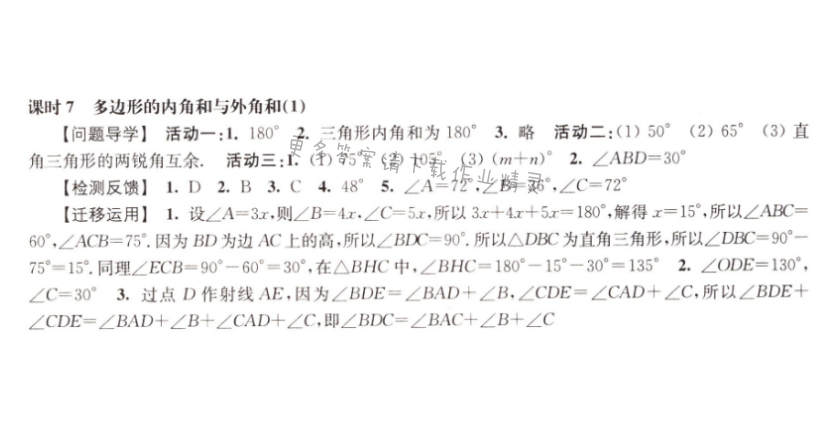 课时7 多边形的内角和与外角和(1)
【问题导学】 活动一:1. 180° 2. 三角形内角和为180° 3. 略 活动二:(1) 50° (2) 65° (3) 直
角三角形的两锐角互余. 活动三:1. (1) 75° (2) 105° (3) (m+n)° 2. ∠ABD=30°
【检测反馈】 1. D 2. B 3. C 4. 48° 5. ∠A=72°,∠B=36°,∠C=72°
【迁移运用】 1. 设∠A=3x,则∠B=4x,∠C=5x,所以 3x+4x+5x=180°,解得 x=15°,所以∠ABC=
60°,∠ACB=75°. 因为 BD 为边 AC 上的高,所以∠BDC=90°. 所以△DBC 为直角三角形,所以∠DBC=90°-
75°=15°. 同理∠ECB=90°-60°=30°,在△BHC 中,∠BHC=180°-15°-30°=135° 2. ∠ODE=130°,
∠C=30° 3. 过点 D 作射线 AE,因为∠BDE=∠BAD+∠B,∠CDE=∠CAD+∠C,所以∠BDE+
∠CDE=∠BAD+∠B+∠CAD+∠C,即∠BDC=∠BAC+∠B+∠C
更多答案请下载作业精灵